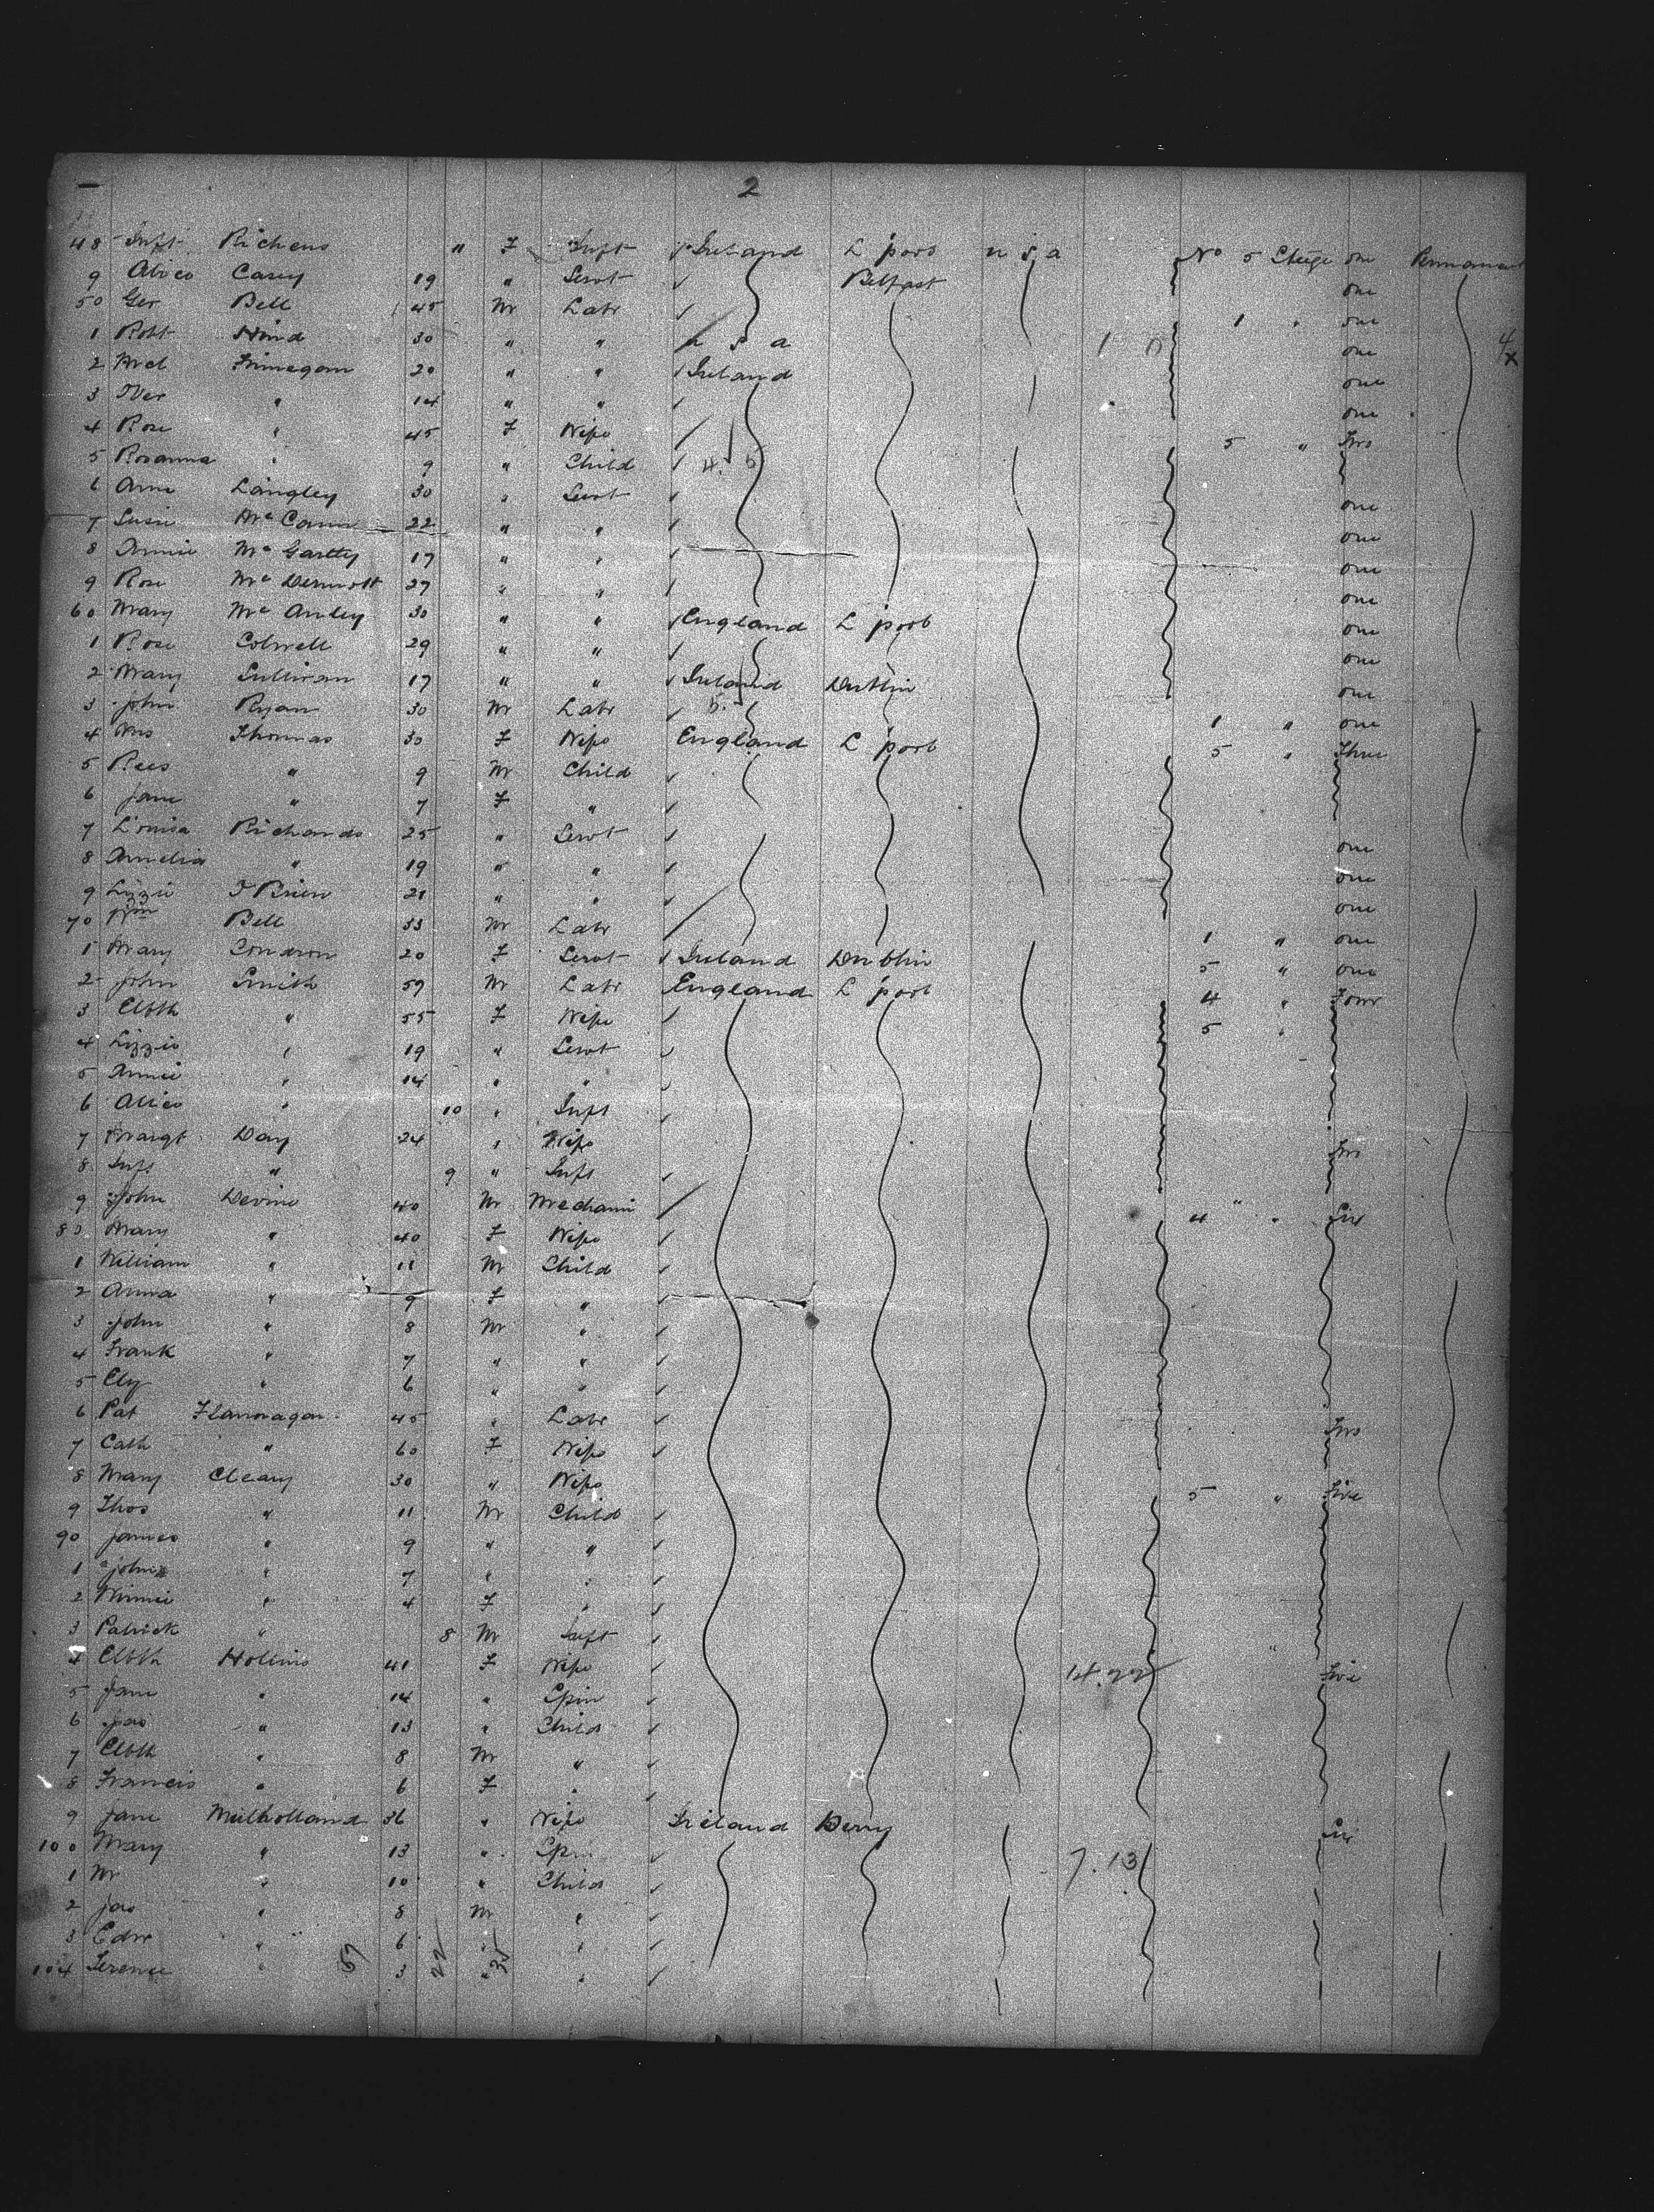 2
48 Inft Richens " F Inft Ireland L'pool U S A No 5 Steege one Permanent
9 Alice Casey 19 " Servt Belfast one
50 Geo Bell 45 M Labr 1 " one
1 Robt Hind 30 " " U S A one
2 Finnegan 20 " " Ireland one
3 " 14 " " one
4 Rose " 45 F Wife 5 " Two
5 Rosanna " 9 " Child
6 Ann Langley 30 " Servt one
7 Susie McCann 22 " " one
8 Annie McGartty 17 " " one
9 Rose McDermott 27 " " one
60 Mary McAuley 30 " " England L'pool one
1 Rose Colwell 29 " " one
2 Mary Sullivan 17 " " Ireland Dublin one
3 John Ryan 30 M Labr 1 " one
4 Mrs Thomas 30 F Wife England L'pool 5 " Three
5 Rees " 9 M Child
6 Jane " 7 F "
7 Louisa Richards 25 " Servt one
8 Amelia " 19 " " one
9 Lizzie O'Brien 21 " " one
70 Wm Bell 33 M Labr 1 " one
1 Mary Condron 20 F Servt Ireland Dublin 5 " one
2 John Smith 59 M Labr England L'pool 4 " Four
3 Elbth " 55 F Wife 5 "
4 Lizzie " 19 " Servt
5 Annie " 14 " "
6 Alice " 10 " Inft
7 Margt Day 24 " Wife Two
8 Inft " 9 " Inft
9 John Devine 40 M Mechani 4 " Six
80 Mary " 40 F Wife
1 William " 11 M Child
2 Anna " 9 F "
3 John " 8 M "
4 Frank " 7 " "
5 Ely " 6 " "
6 Pat Flannagan 45 " Labr Two
7 Cath " 60 F Wife
8 Mary Cleary 30 " Wife 5 " Five
9 Thos " 11 M Child
90 James " 9 " "
1 John " 7 " "
2 Winnie " 4 F "
3 Patrick " 8 M Inft
4 Elbth Hollins 41 F Wife " Five
5 Jane " 14 " Spin
6 Jas " 13 " Child
7 Elbth " 8 M "
8 Francis " 6 F "
9 Jane Mulholland 36 " Wife Ireland Derry Six
100 Mary " 13 " Spin 7.13
1 M " 10 " Child
2 Jas " 8 M "
3 Edw " 6 " "
104 Terence " 3 " "